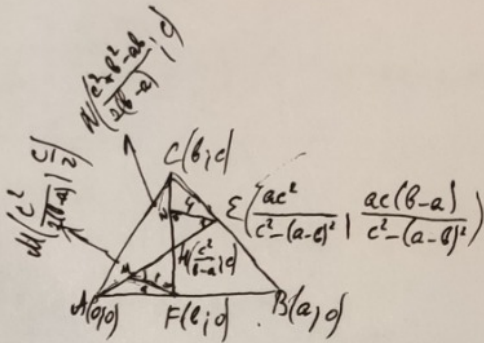 N(\frac{c^2+b^2-ab}{2(b-a)}; c)
M(\frac{c^2}{2(b-a)}; \frac{c}{2})
C(b; c)
E(\frac{ac^2}{c^2-(a-b)^2}; \frac{ac(b-a)}{c^2-(a-b)^2})
H(\frac{c^2}{b-a}; c)
A(0;0)
F(b;0)
B(a;0)